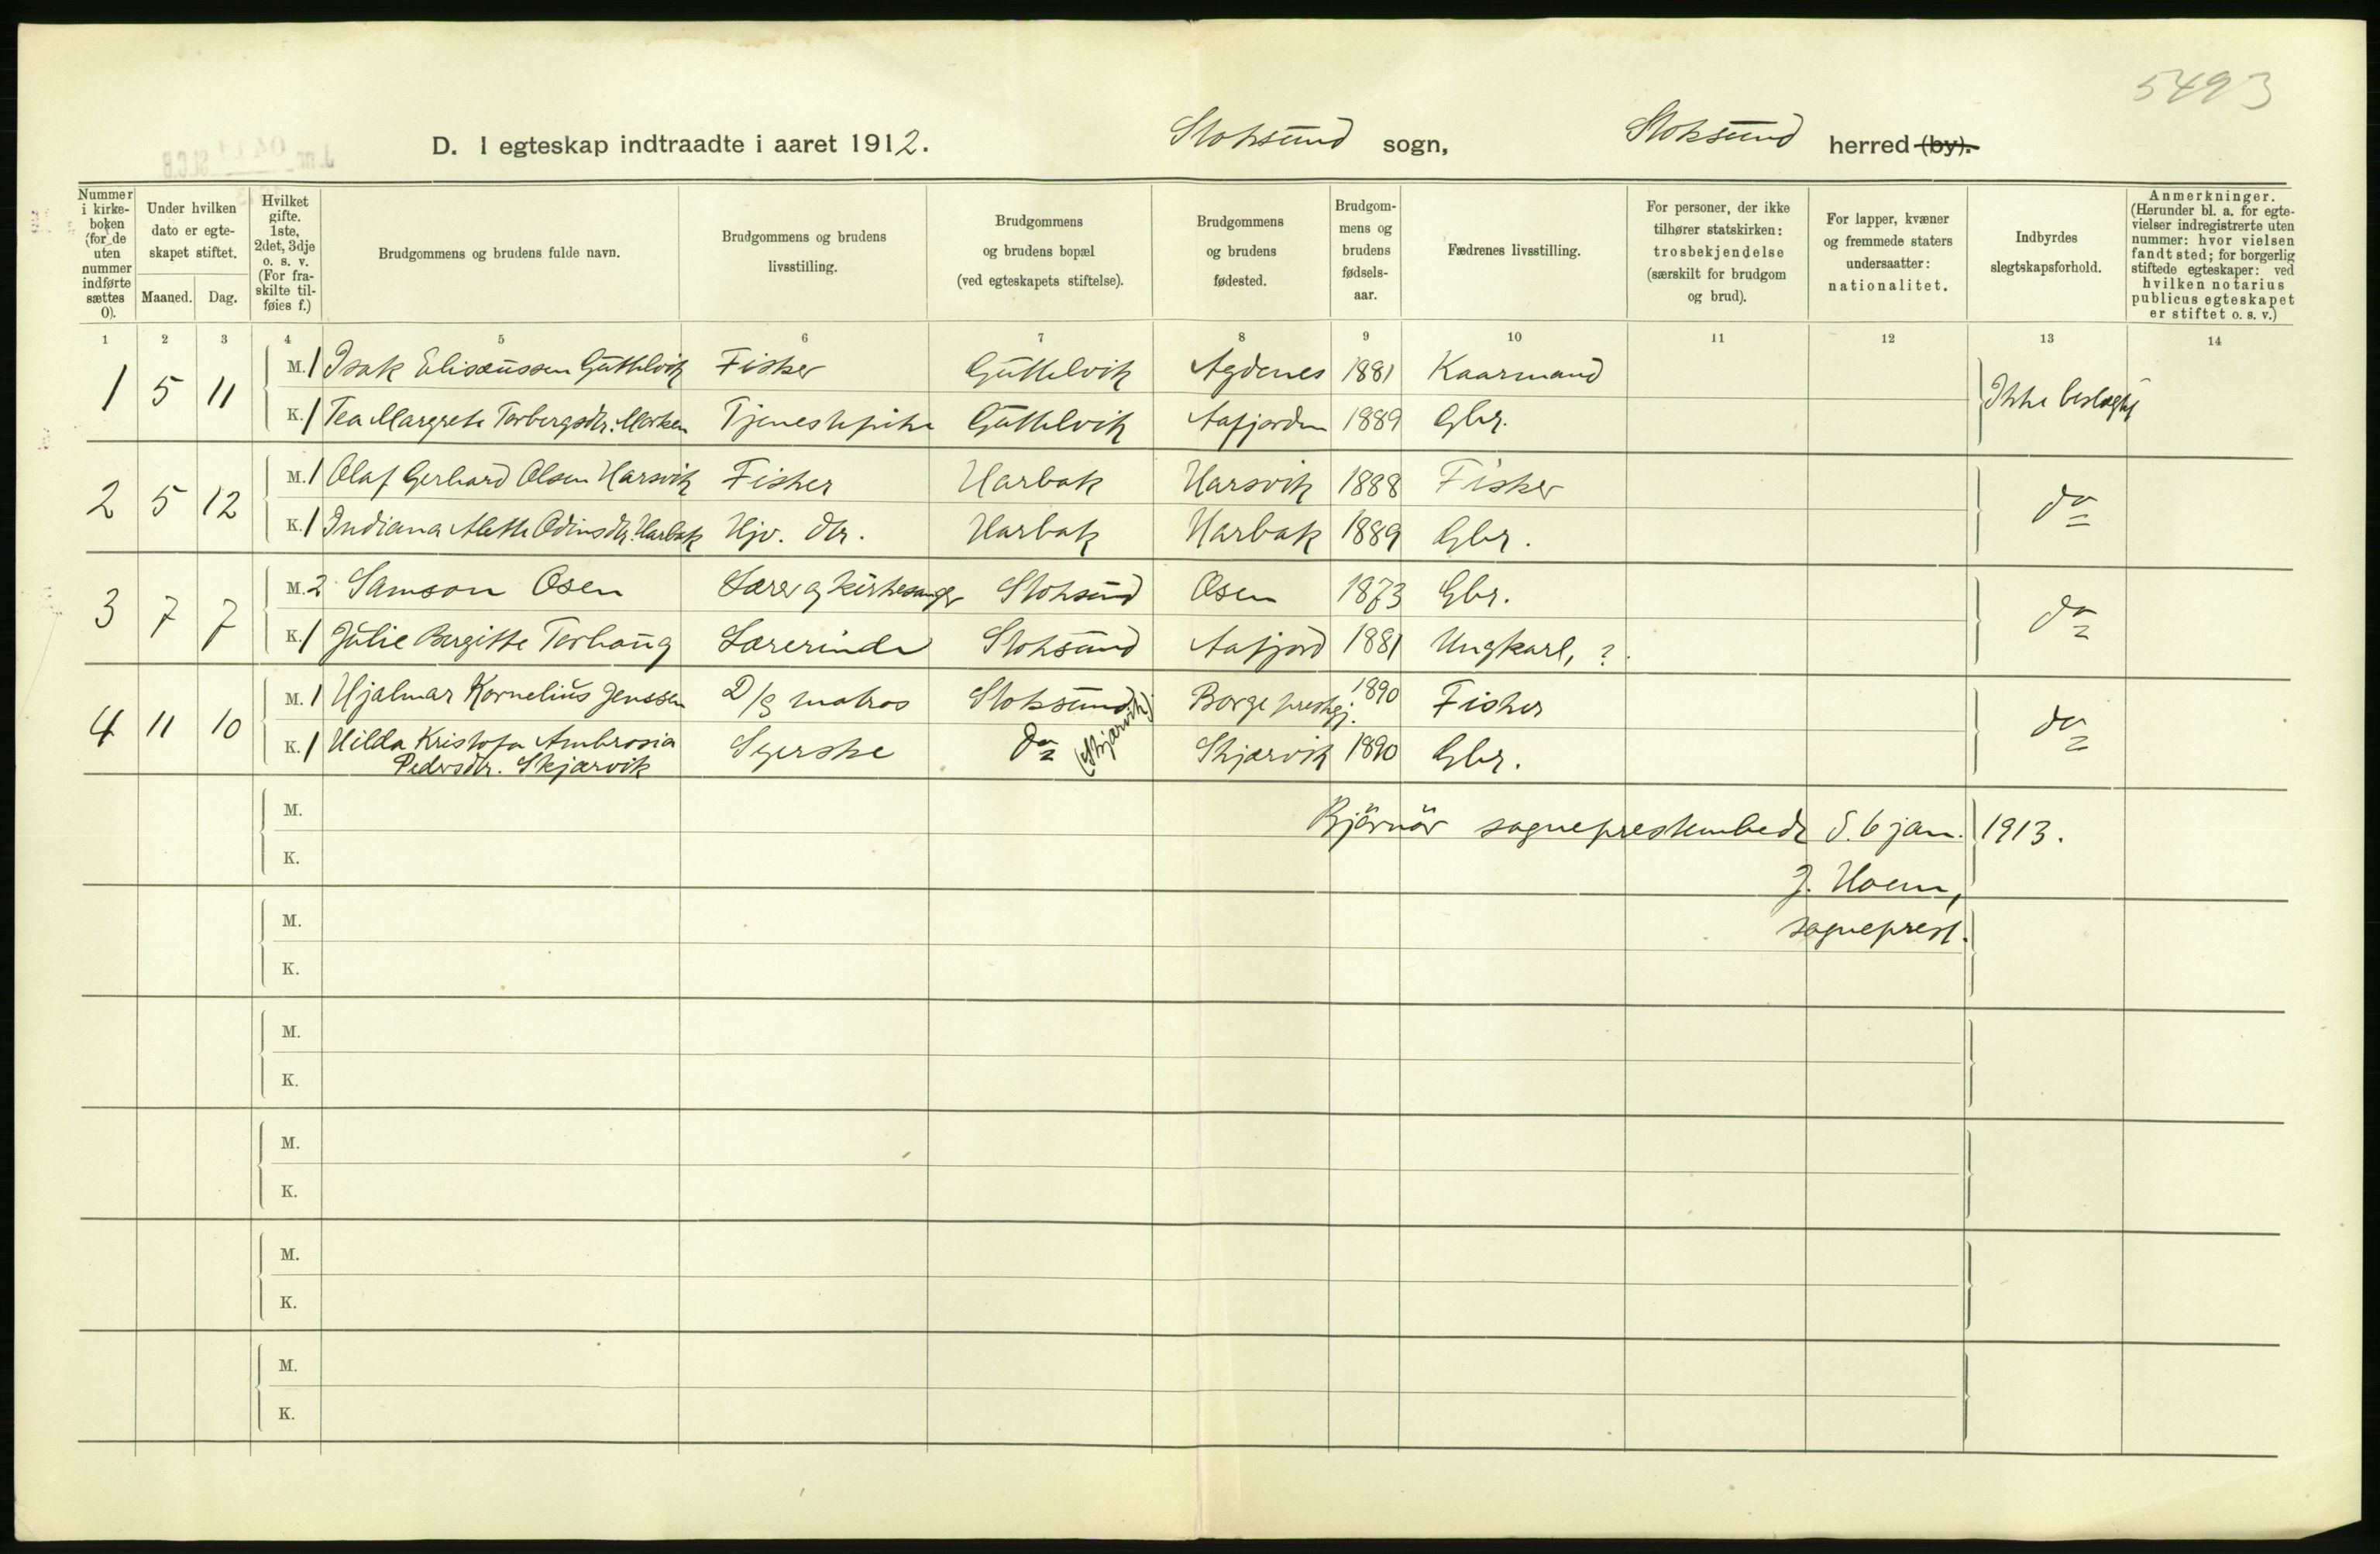 5493
D. I egteskap indtraadte i aaret 1912. Stoksund sogn, Stoksund herred (by).
Nummer i kirkeboken (for de uten nummer indførte sættes 0).
Under hvilken dato er egteskapet stiftet.
Maaned. Dag.
Hvilket gifte. 1ste, 2det, 3dje o. s. v. (For fraskilte tilføies f.)
Brudgommens og brudens fulde navn.
Brudgommens og brudens livsstilling.
Brudgommens og brudens bopæl (ved egteskapets stiftelse).
Brudgommens og brudens fødested.
Brudgommens og brudens fødselsaar.
Fædrenes livsstilling.
For personer, der ikke tilhører statskirken: trosbekjendelse (særskilt for brudgom og brud).
For lapper, kvæner og fremmede staters undersaatter: nationalitet.
Indbyrdes slegtskapsforhold.
Anmerkninger. (Herunder bl. a. for egtevielser indregistrerte uten nummer: hvor vielsen fandt sted; for borgerlig stiftede egteskaper: ved hvilken notarius publicus egteskapet er stiftet o. s. v.)
1 2 3 4 5 6 7 8 9 10 11 12 13 14
1 5 11 M. 1 Isak Elisæussen Guttelvik Fisker Guttelvik Agdenes 1881 Kaarmand Ikke beslægt
K. 1 Tea Margrete Torbergsdtr. Morken Tjenestepike Guttelvik Aafjorden 1889 Gbr.
2 5 12 M. 1 Olaf Gerhard Olsen Harsvik Fisker Harbak Harsvik 1888 Fisker do
K. 1 Indiana Alette Odinsdtr. Harbak Hjv. dtr. Harbak Harbak 1889 Gbr.
3 7 7 M. 2 Samson Osen Lærer og kirkesanger Stoksund Osen 1873 Gbr. do
K. 1 Julie Bergitte Torhaug Lærerinde Stoksund Aafjord 1881 Ungkarl, ?
4 11 10 M. 1 Hjalmar Kornelius Jenssen D/s matros Stoksund Borge prestgj. 1890 Fisker do
K. 1 Hilda Kristofa Ambrosia Syerske do (Skjærvik) Skjærvik 1890 Gbr.
Pedersdtr. Skjærvik
M. Björnör sogneprestembede d. 6 jan. 1913.
K.
J. Hoem,
M. sogneprest.
K.
M.
K.
M.
K.
M.
K.
M.
K.